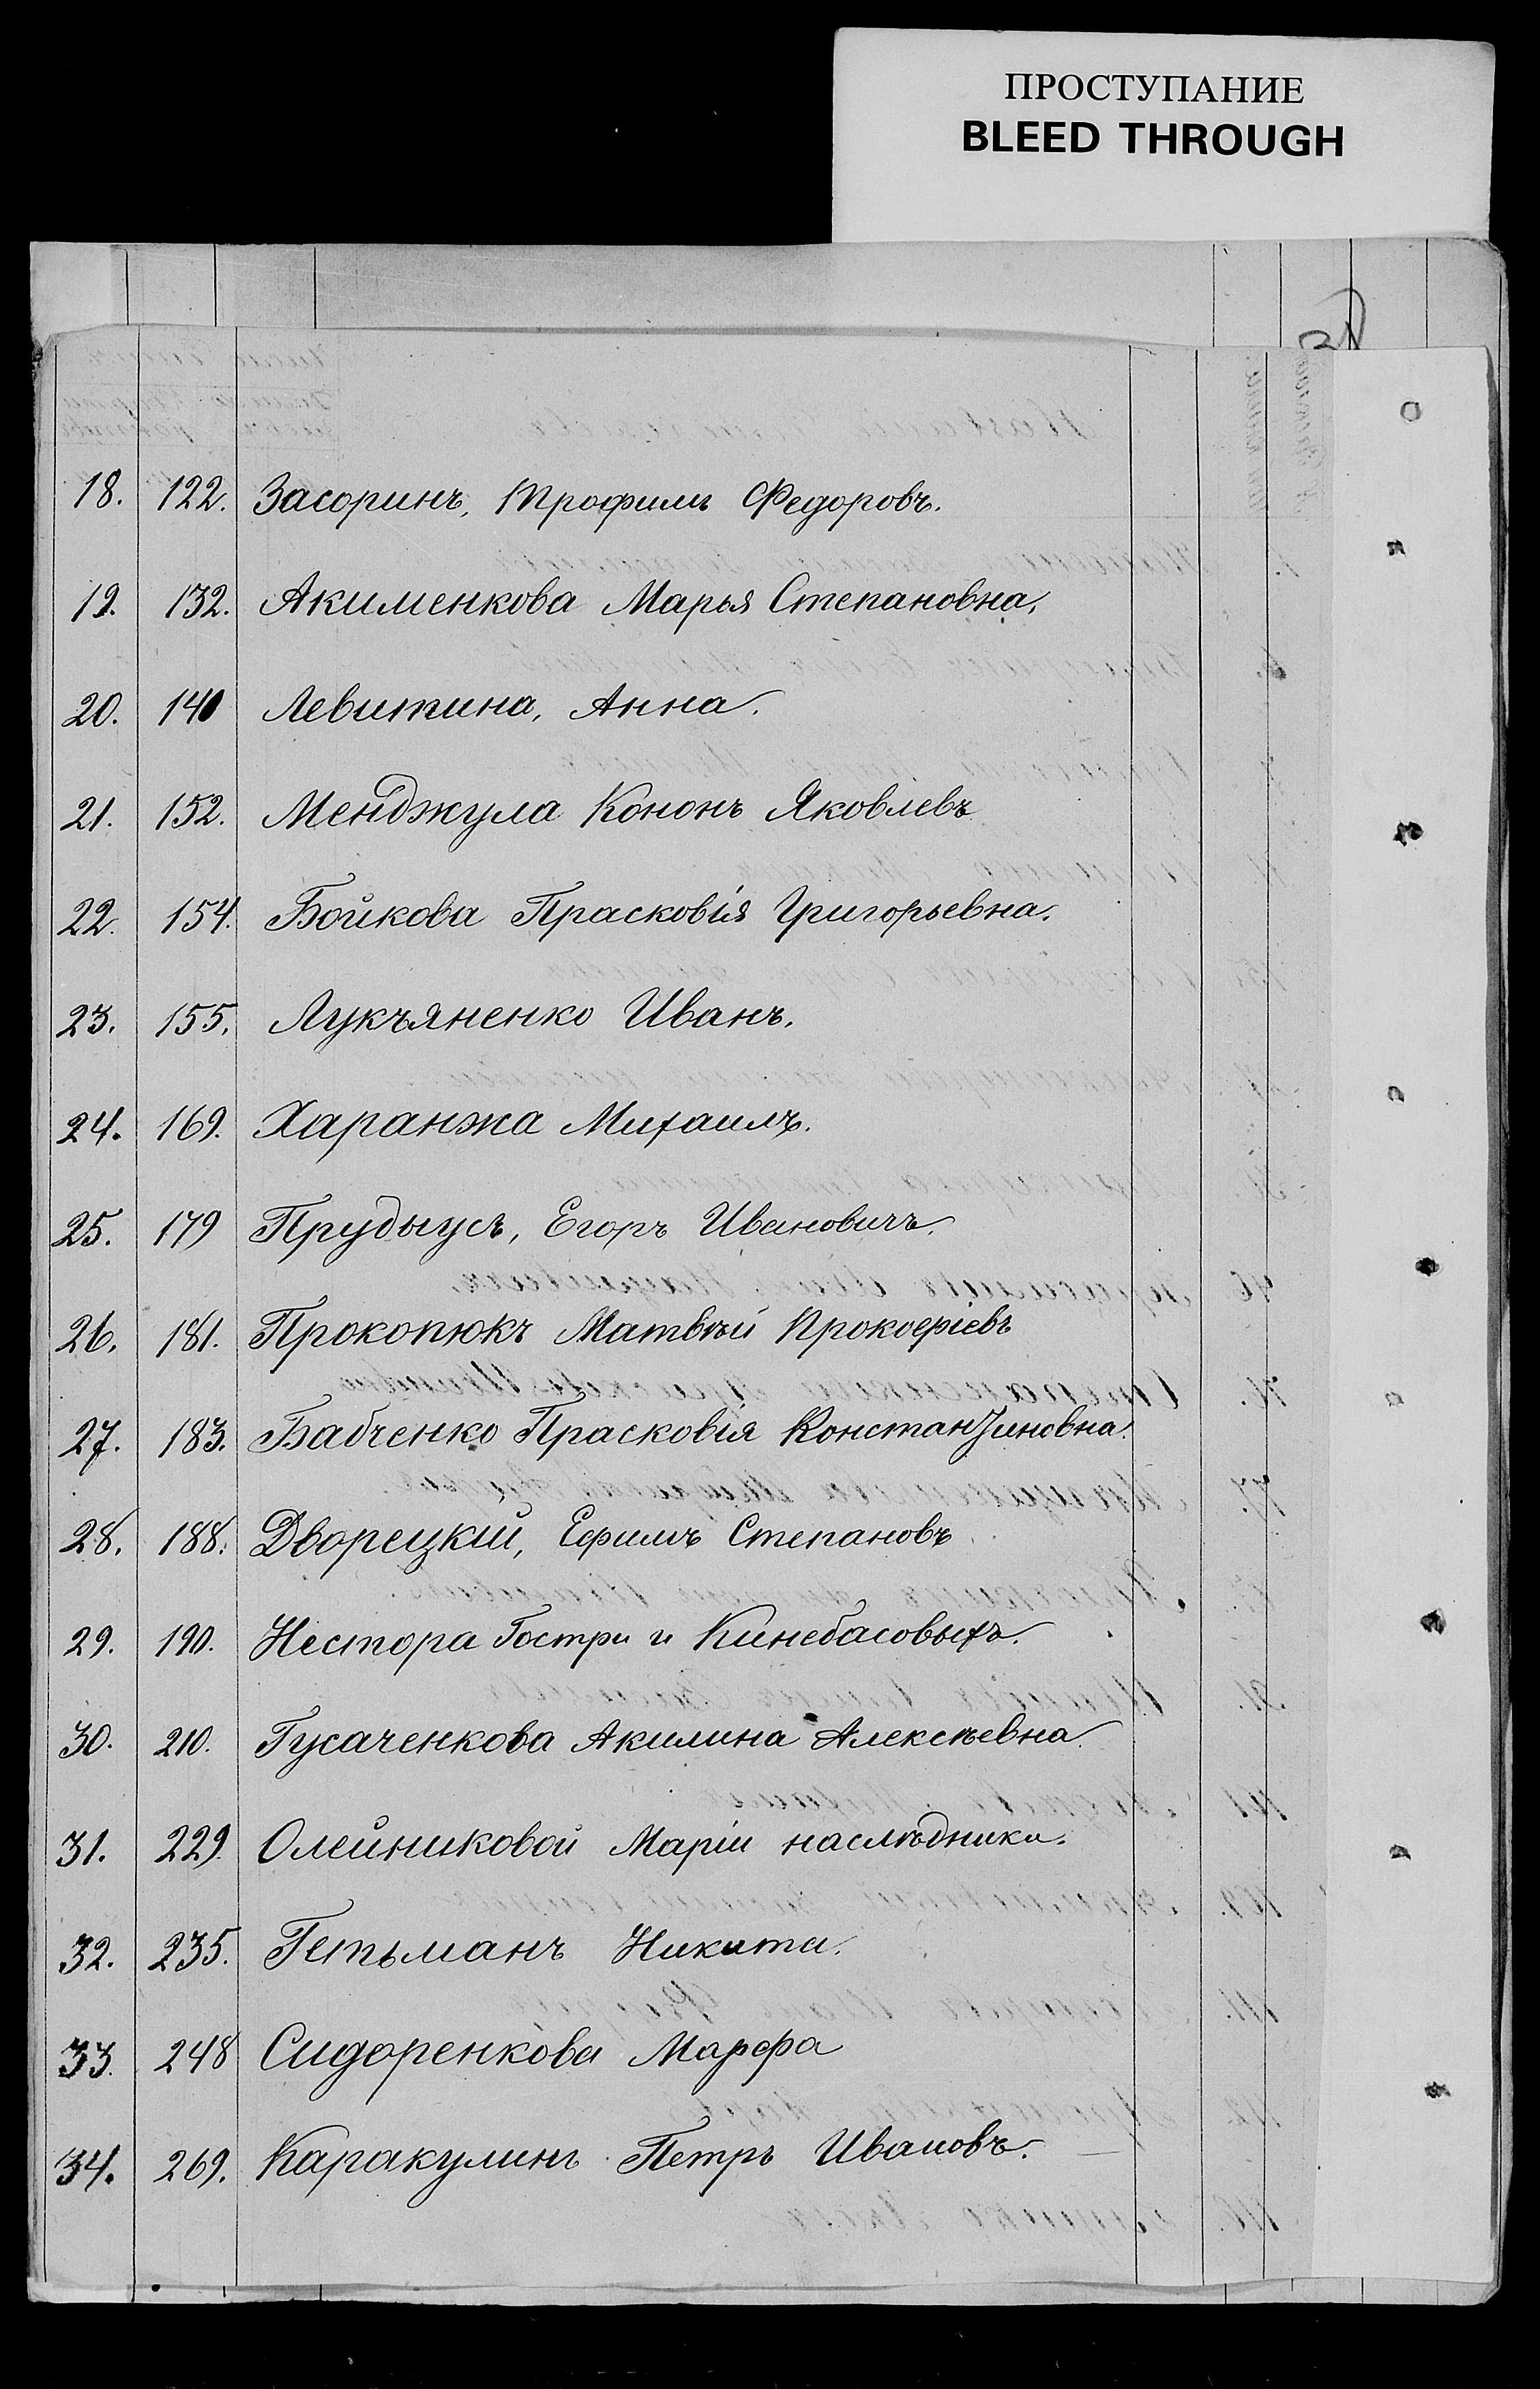 ПРОСТУПАНИЕ
BLEED THROUGH
18. 122. Засоринъ, Трофимъ Федоровъ.
19. 132. Акименкова Марья Степановна,
20. 140 Левитина, Анна.
21. 152. Менджула Кононъ Яковлевъ
22. 154. Бойкова Прасковія Григорьевна.
23. 155. Лукъяненко Иванъ.
24. 169. Харанжа Михаилъ.
25. 179 Прудыусъ, Егоръ Ивановичъ.
26. 181. Прокопюкъ Матвѣй Прокофіевъ
27. 183. Бабченко Прасковія Константиновна.
28. 188. Дворецкій, Ефимъ Степановъ
29. 190. Нестора Гостри и Кинебасовыхъ.
30. 210. Гусаченкова Акилина Алексѣевна.
31. 229. Олейниковой Маріи наслѣдники.
32. 235. Гетьманъ Никита.
33. 248 Сидоренкова Марфа
34. 269. Каракулинъ Петръ Ивановъ.